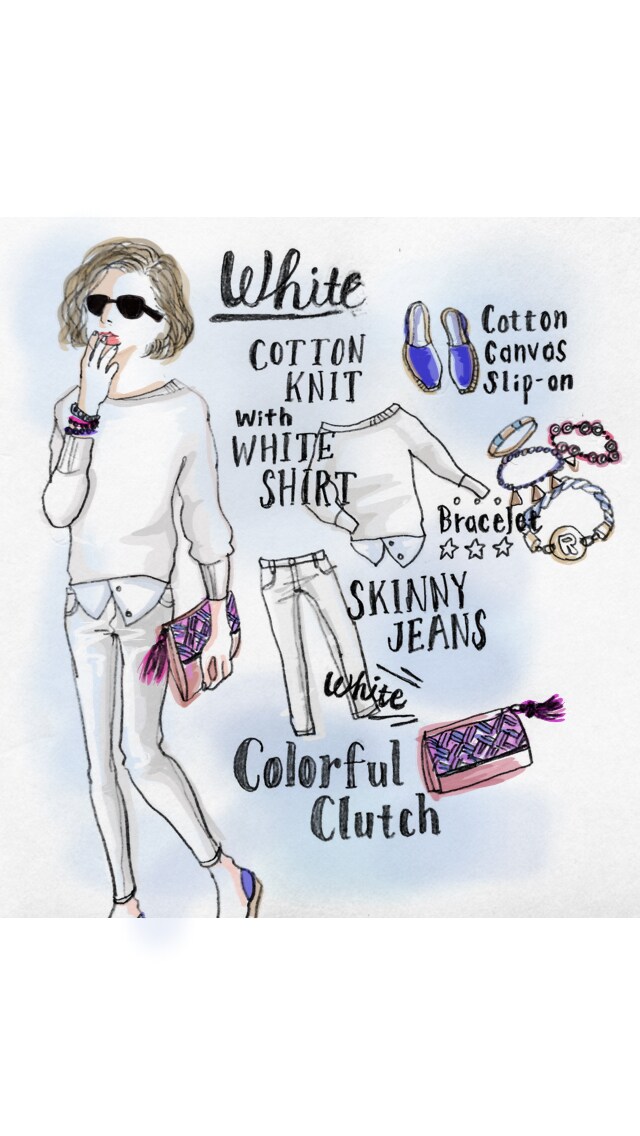 White
COTTON
KNIT
With
WHITE
SHIRT
Cotton
Canvas
Slip-on
Bracelet
R
SKINNY
JEANS
White
Colorful
Clutch